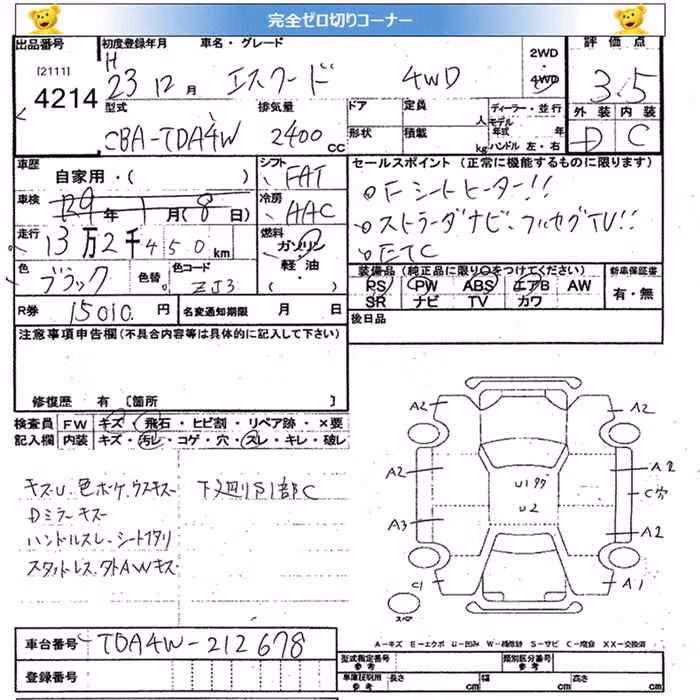 完全ゼロ切りコーナー
出品番号 初度登録年月 車名・グレード 2WD 評価点
[2111] H 4WD
4214 23年12月 エスクード 4WD 3.5
型式 排気量 ドア 定員 ディーラー・並行 外装 内装
CBA-TDA4W 2400cc 人 モデル年式 年 D C
形状 積載 kg ハンドル 左・右
車歴 自家用・( ) シフト FAT セールスポイント(正常に機能するものに限ります)
車検 R9年1月(8日) 冷房 AAC ○Fシートヒーター!!
走行 13万2千450km 燃料 ガソリン ○ストラーダナビ・フルセグTV!!
色 ブラック 色替 色コード ZJ3 軽油 ( ) ○ETC
装備品(純正品に限り○をつけてください) 新車保証書
PS PW ABS エアB AW 有・無
SR ナビ TV カワ
R券 15010.円 名変通知期限 月 日 後日品
注意事項申告欄(不具合内容等は具体的に記入して下さい)
修復歴 有 [箇所 ]
検査員 FW キズ・飛石・ヒビ割・リペア跡・×要
記入欄 内装 キズ・汚レ・コゲ・穴・スレ・キレ・破レ
キズ・U.色ボケ.ウスキズ 下廻りS1部C
Dミラーキズ
ハンドルスレ.シートヘタリ
スタッドレス.外AWキズ
A2 A2
A2 U1 A2
C穴
A3 U2 A2
C1 A1
スペア
A-キズ E-エクボ U-凹み W-補修跡 S-サビ C-腐食 XX-交換済
車台番号 TDA4W-212678
登録番号
型式指定番号 参考 類別区分番号 参考
車庫証明用 参考 長さ cm 幅 cm 高さ cm